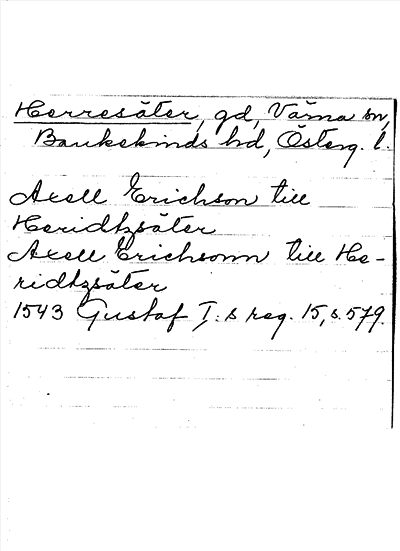 Herresäter, gd, Värna sn,
Bankekinds hd, Österg. l.
Axell Erichson till
Heridtzsäter
Axell Erichsonn till He-
ridtzsäter
1543 Gustaf I:s reg. 15, s. 579.